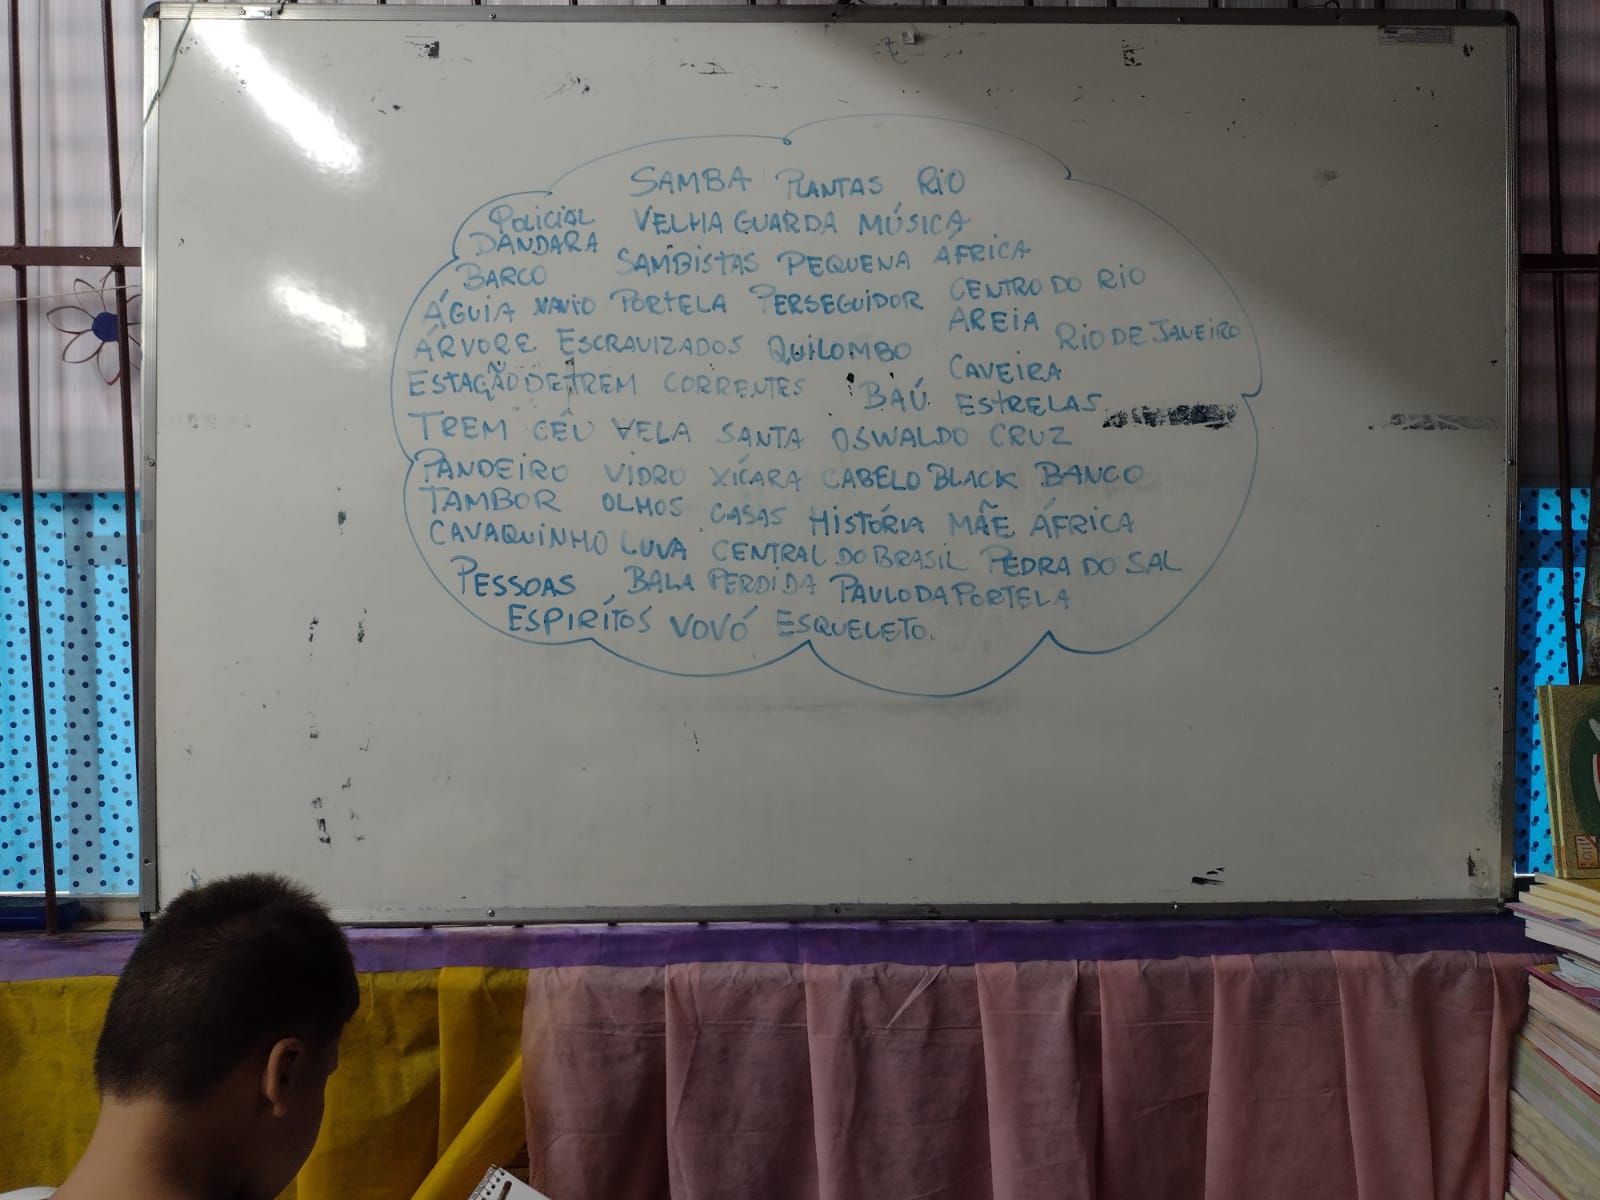 SAMBA PLANTAS RIO
POLICIAL VELHA GUARDA MÚSICA
DANDARA SAMBISTAS PEQUENA ÁFRICA
BARCO CENTRO DO RIO
ÁGUIA NAVIO PORTELA PERSEGUIDOR AREIA RIO DE JANEIRO
ÁRVORE ESCRAVIZADOS QUILOMBO CAVEIRA
ESTAÇÃO DE TREM CORRENTES BAÚ ESTRELAS
TREM CÉU VELA SANTA OSWALDO CRUZ
PANDEIRO VIDRO XÍCARA CABELO BLACK BANCO
TAMBOR OLHOS CASAS HISTÓRIA MÃE ÁFRICA
CAVAQUINHO LUVA CENTRAL DO BRASIL PEDRA DO SAL
PESSOAS BALA PERDIDA PAULO DA PORTELA
ESPIRÍTOS VOVÓ ESQUELETO.